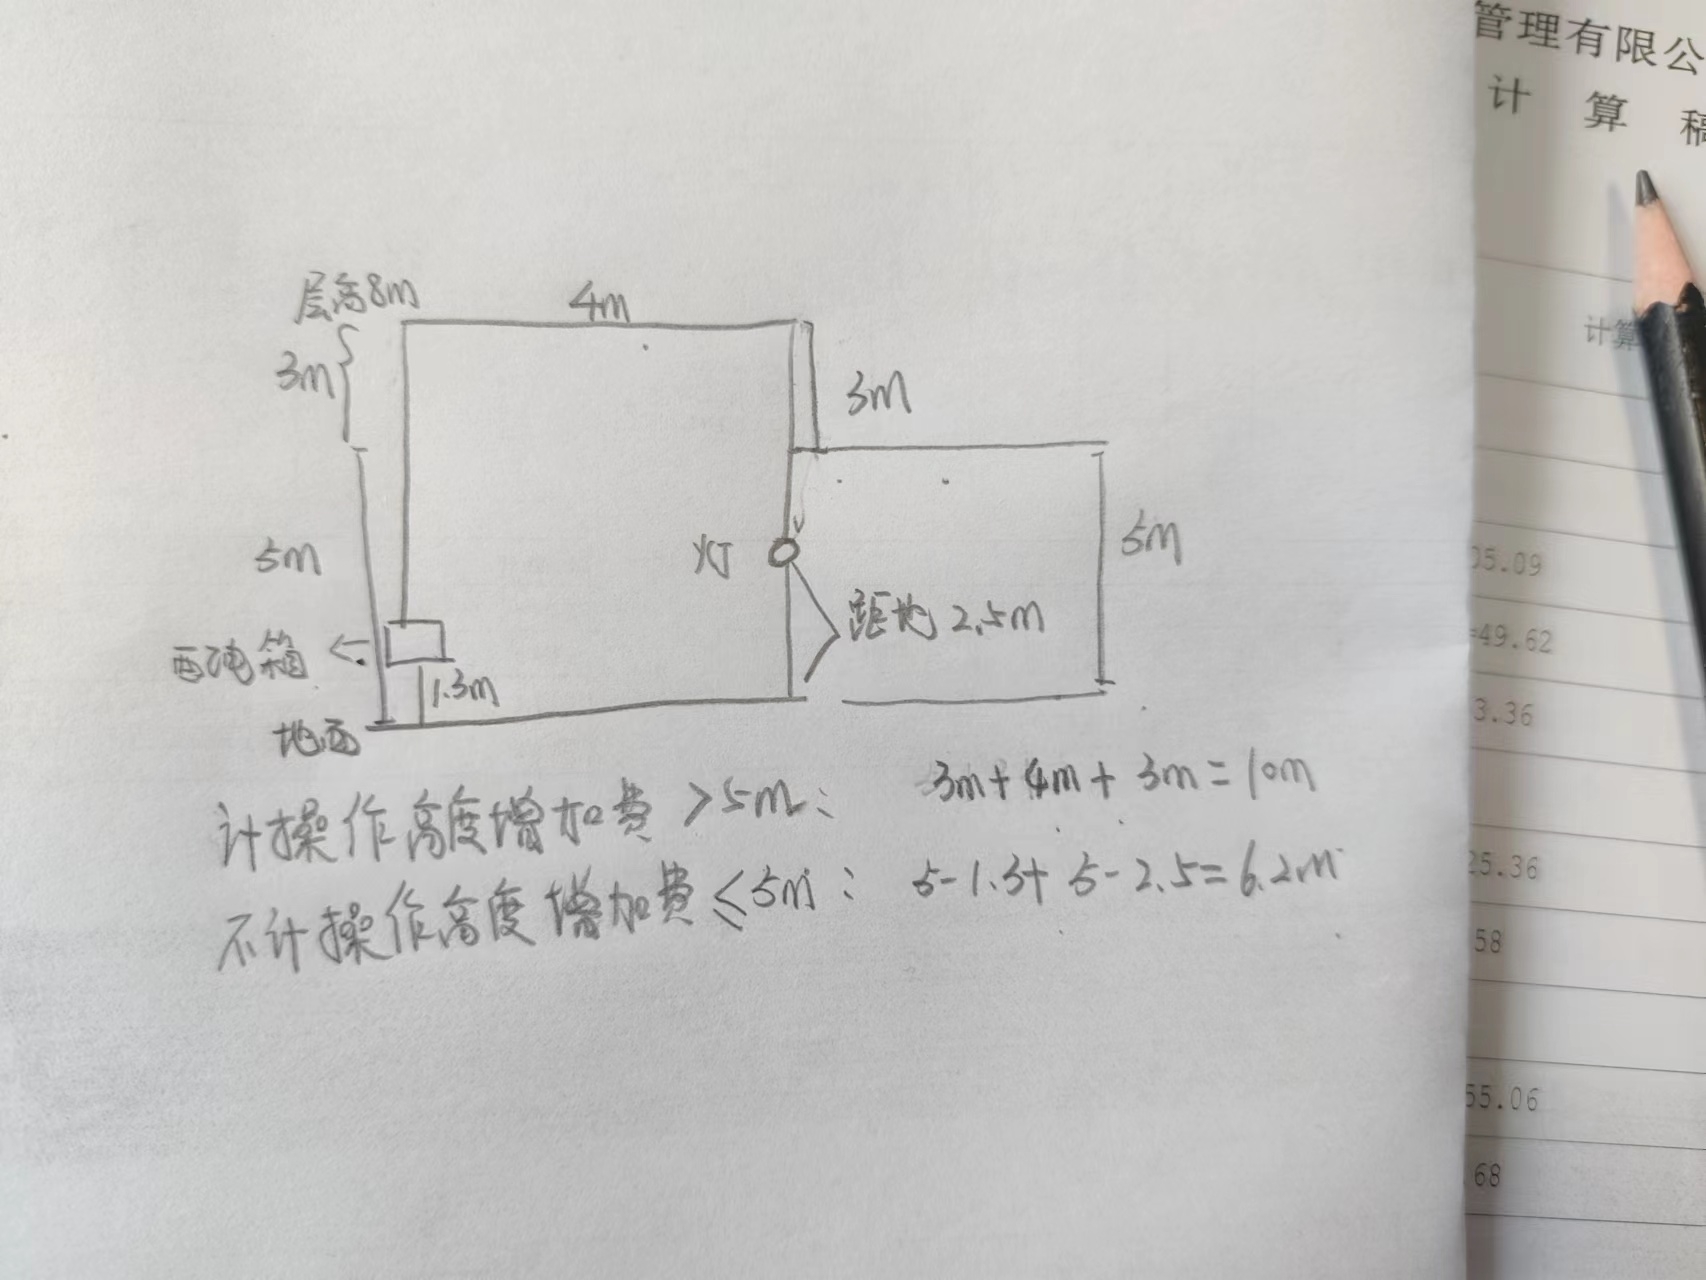 管理有限公
计 算 稿
层高8m
4m
3m
3m
计算
5m
灯
5m
05.09
距地 2.5m
=49.62
配电箱
1.3m
3.36
地面
计操作高度增加费 >5m: 3m+4m+3m=10m
不计操作高度增加费 ≤5m: 5-1.3+5-2.5=6.2m
25.36
58
55.06
.68